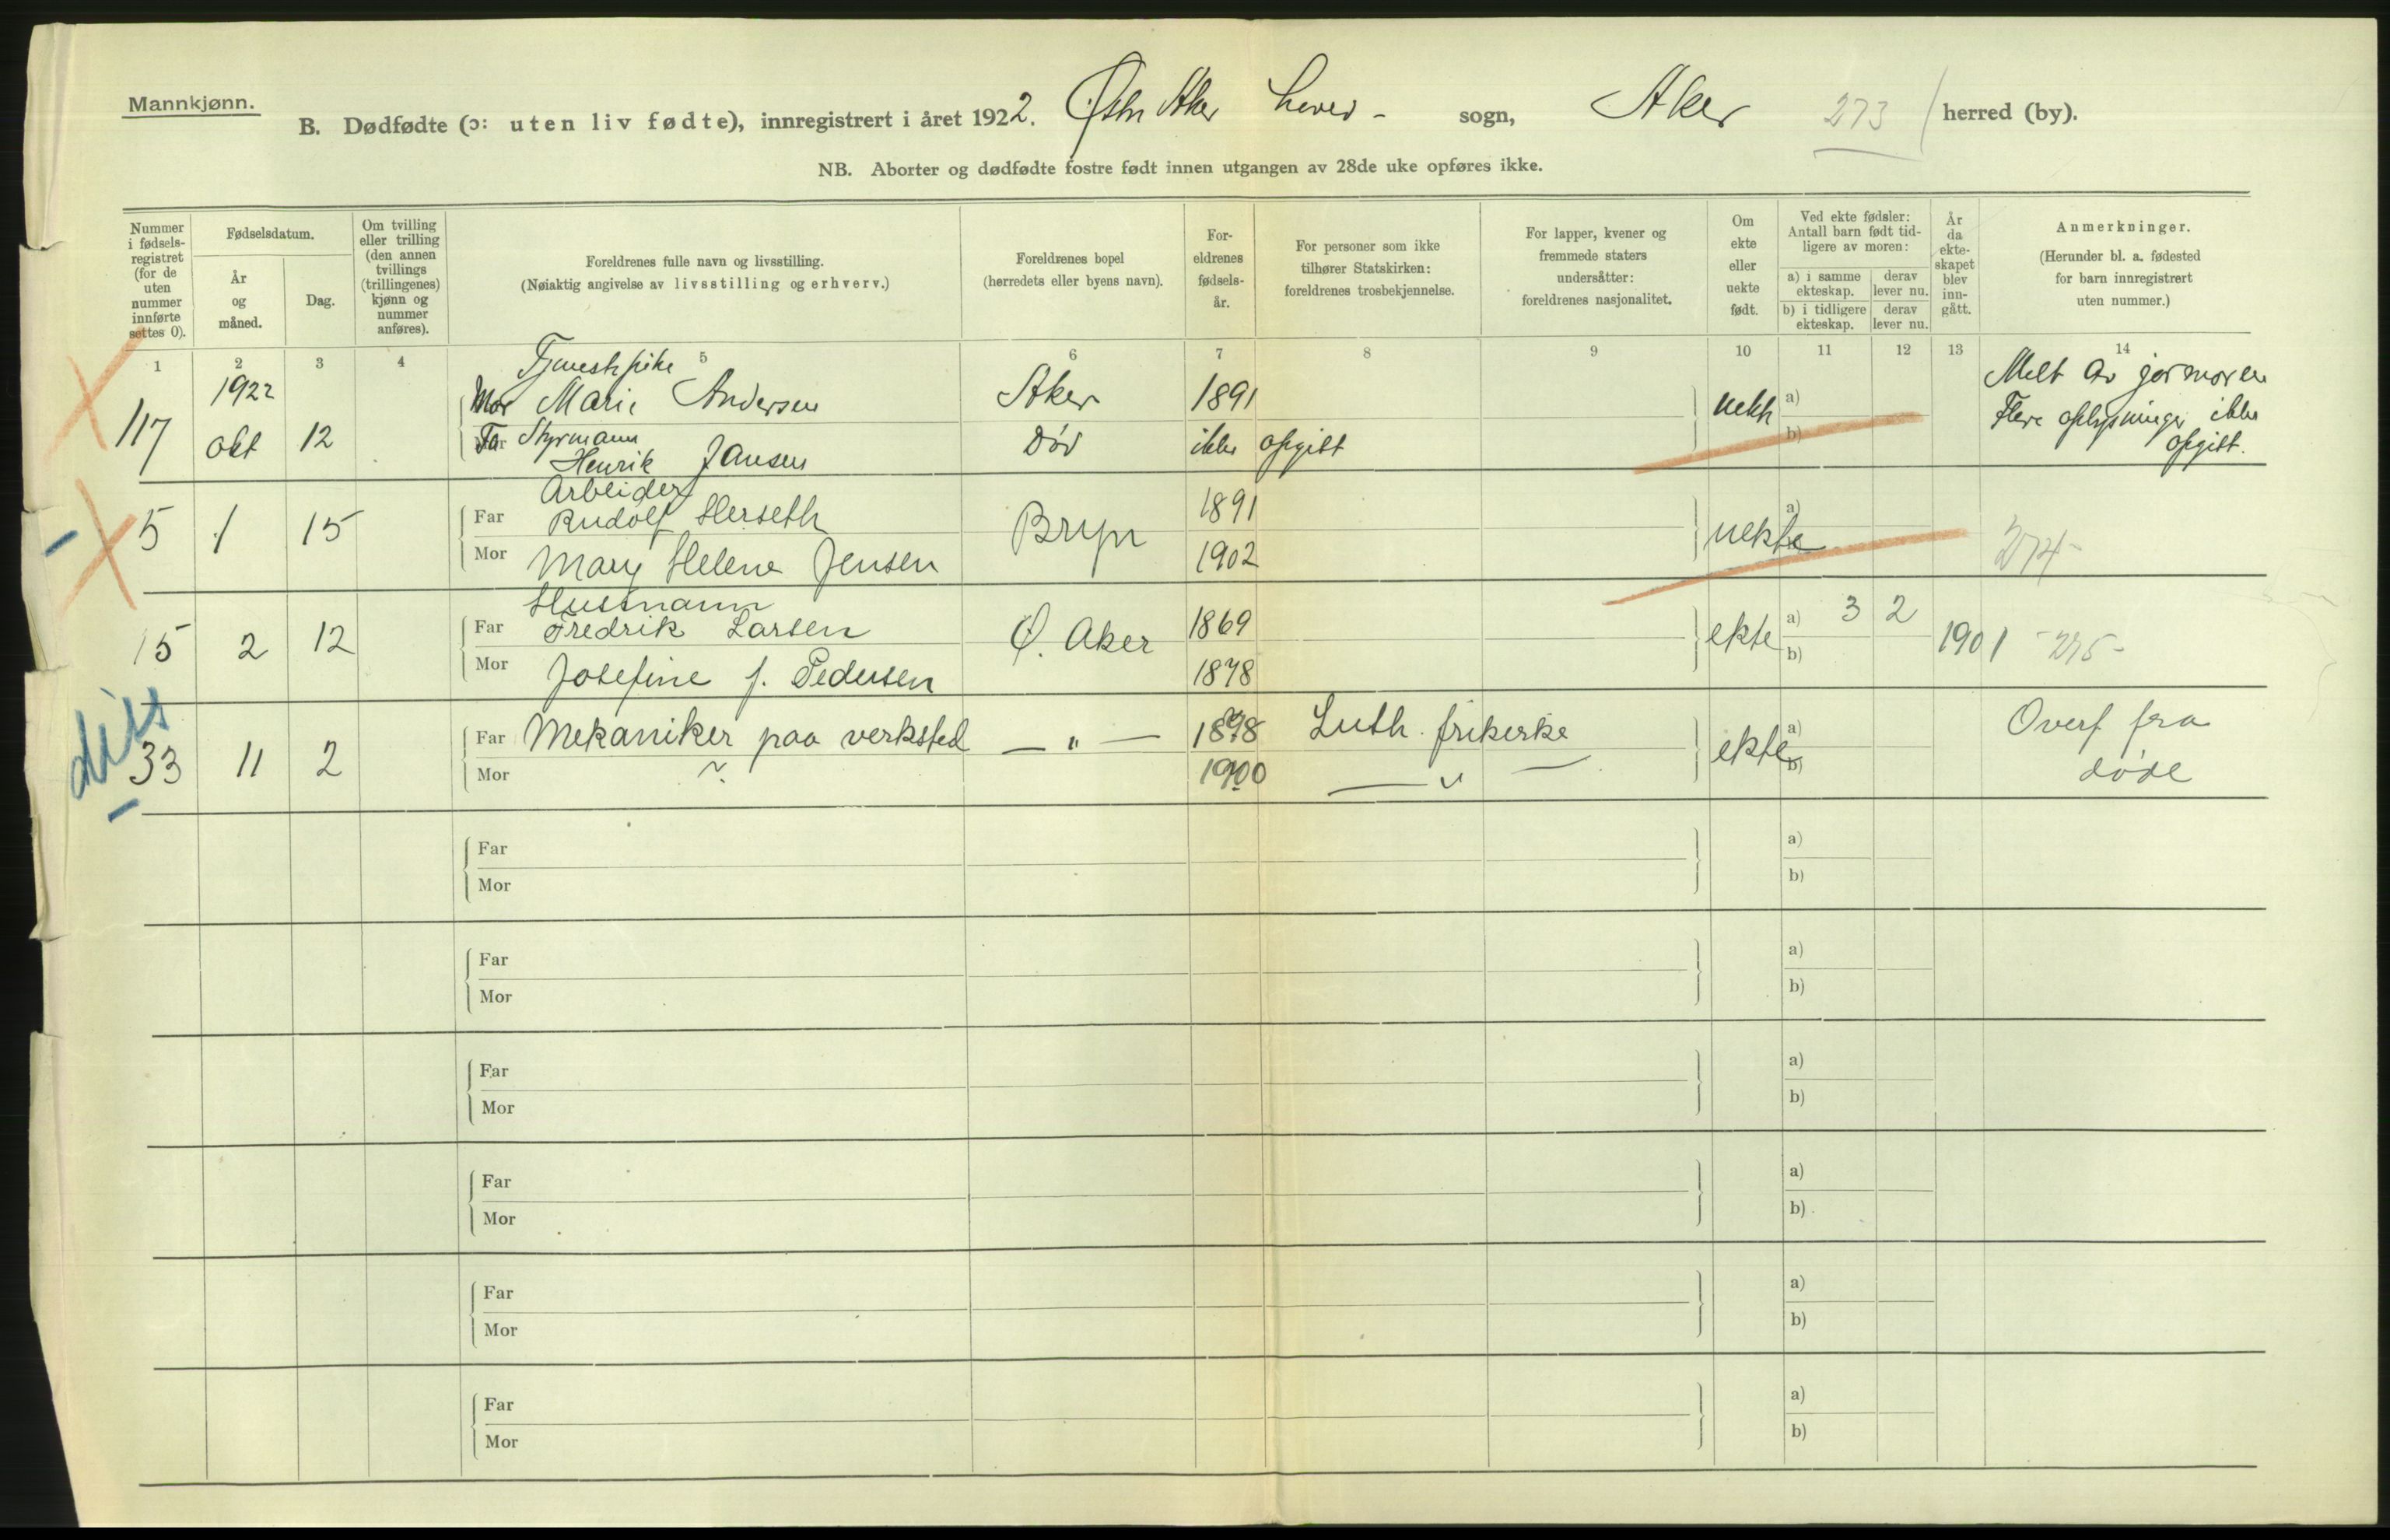 Mannkjønn.
B. Dødfødte (ɔ: uten liv fødte), innregistrert i året 1922. Østre Aker hoved- sogn, Aker 273 herred (by).
NB. Aborter og dødfødte fostre født innen utgangen av 28de uke opføres ikke.
Nummer i fødsels-registret (for de uten nummer innførte settes 0).
Fødselsdatum.
År og måned.
Dag.
Om tvilling eller trilling (den annen tvillings (trillingenes) kjønn og nummer anføres).
Foreldrenes fulle navn og livsstilling.
(Nøiaktig angivelse av livsstilling og erhverv.)
Foreldrenes bopel
(herredets eller byens navn).
For-eldrenes fødsels-år.
For personer som ikke tilhører Statskirken: foreldrenes trosbekjennelse.
For lapper, kvener og fremmede staters undersåtter: foreldrenes nasjonalitet.
Om ekte eller uekte født.
Ved ekte fødsler: Antall barn født tid-ligere av moren:
a) i samme ekteskap.
derav lever nu.
b) i tidligere ekteskap.
derav lever nu.
År da ekte-skapet blev inn-gått.
Anmerkninger.
(Herunder bl. a. fødested for barn innregistrert uten nummer.)
1 2 3 4 5 6 7 8 9 10 11 12 13 14
Tjenestepike
1922 Mor Marie Andersen Aker 1891 uekte a) Melt av jormoren
117 okt 12 Far Styrmann død ikke opgitt b) Flere oplysninger ikke
Henrik Jansen opgitt.
Arbeider
5 1 15 Far Rudolf Herseth Bryn 1891 uekte a) 274-
Mor Mary Helene Jensen 1902
Husmann
15 2 12 Far Fredrik Larsen Ø. Aker 1869 ekte a) 3 2 1901 -275-
Mor Josefine f. Pedersen 1878 b)
dits
33 11 2 Far Mekaniker paa verksted — " — 1898 Luth. frikirke ekte a) Overf fra
Mor ~ 1900 — " — b) døde
Far a)
Mor b)
Far a)
Mor b)
Far a)
Mor b)
Far a)
Mor b)
Far a)
Mor b)
Far a)
Mor b)